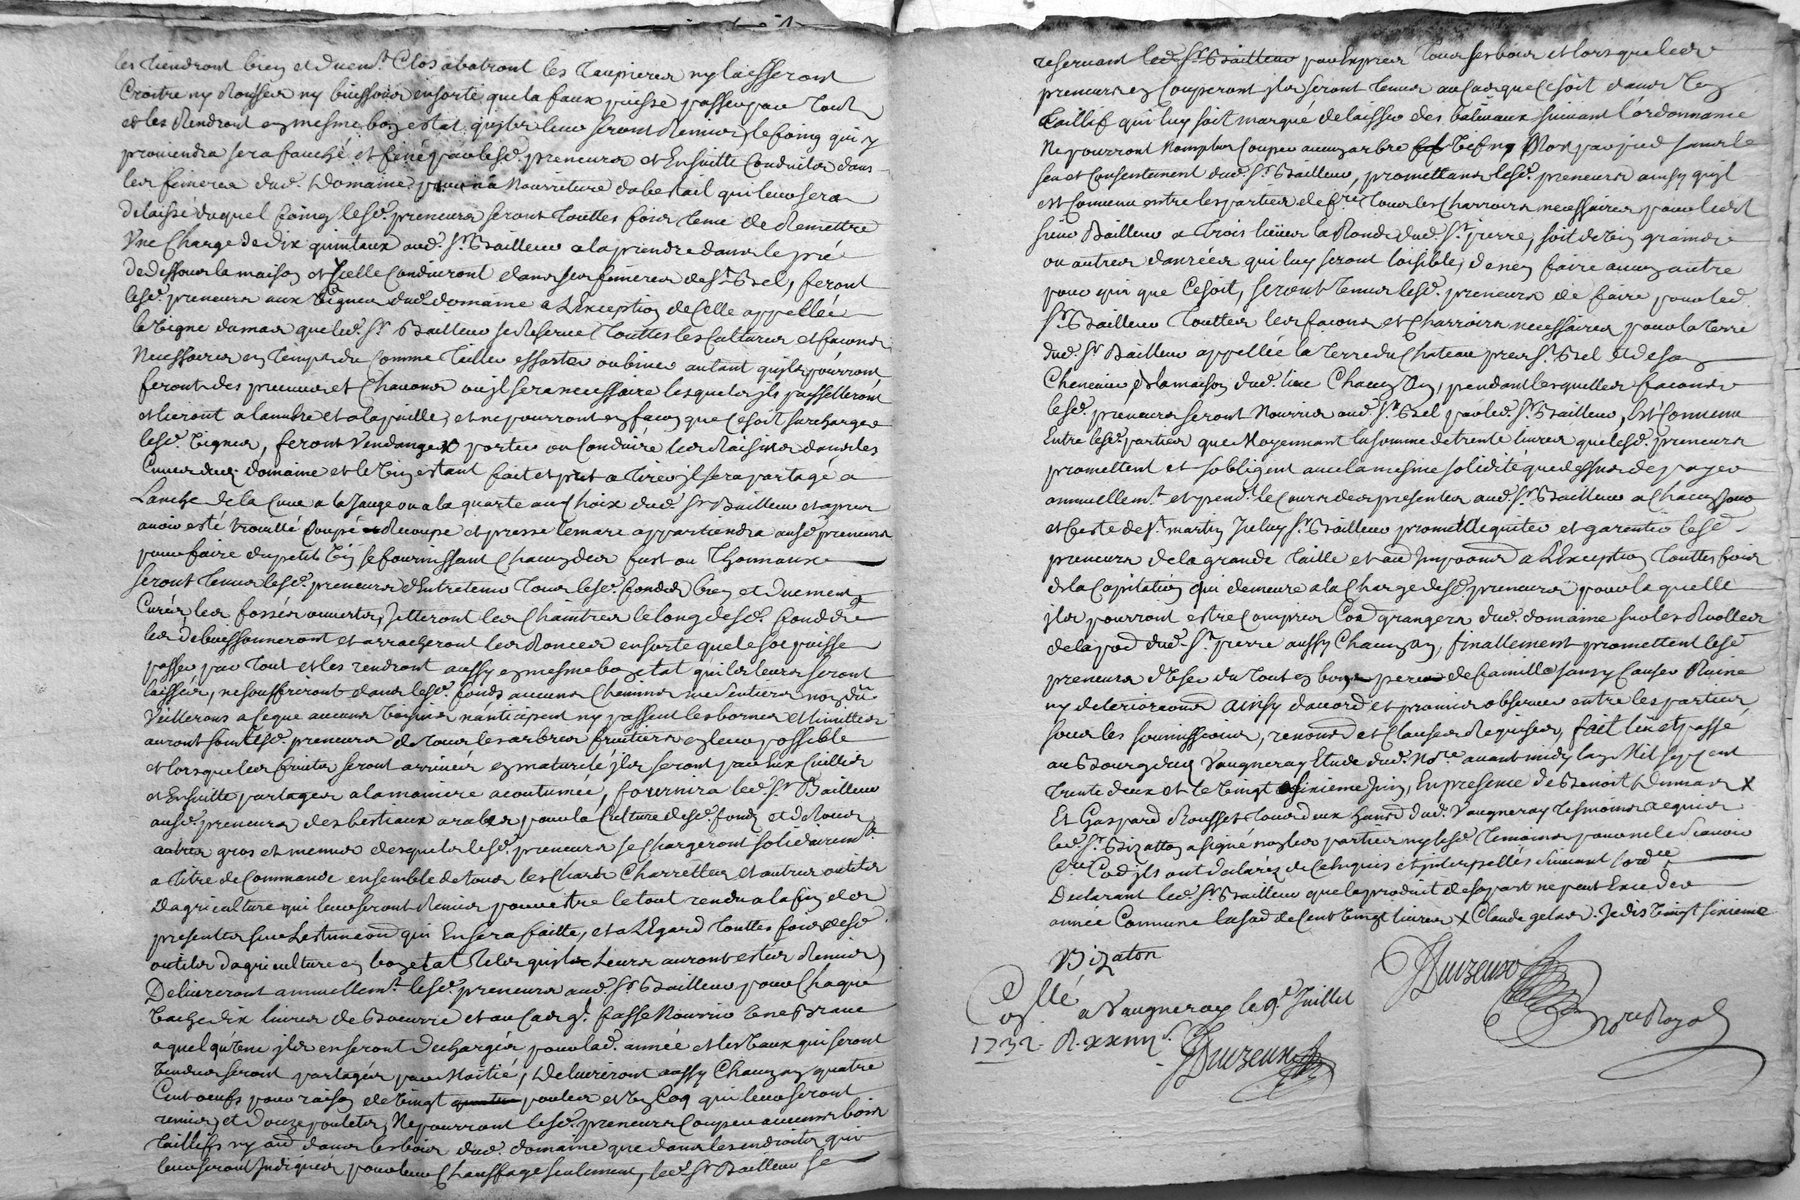 les tiendront bien et duem.t Clos abatront les taupieres ny laisseront
Croitre ny Ronsses ny buissons en sorte que la faux puisse passer par tout
et les Rendront en mesme bon estat qu'ils leur seront Remis, le foing qui y
proviendra sera fauché et fené par lesd. preneurs et Ensuitte Conduits dans
les fenieres dud. Domaine pour la Nourriture du bestail qui leur sera
delaissé duquel foing lesd. preneurs seront touttes fois tenu de Remettre
Une Charge de dix quintaux aud. S.r Bailleur a la prendre dans le pré
de dessous la maison et Icelle Conduiront dans ses fenieres de S.t Bel, feront
lesd. preneurs aux Vignes dud. domaine a L'Exception de Celle appellée
la Vigne damas que led. S.r Bailleur se Reserve touttes les Cultures et facons
Necessaires en temps du Comme tailler essarter ou biner autant qu'ils pourront
feront des preuves et Chavons ou il sera necessaire lesquels ils paisselleront
et lieront a lambre et a la paille, et ne pourront en facon que Ce soit surcharger
lesd. Vignes, feront Vendanger porter ou Conduire les Raisins dans les
Cuves dud. domaine et le Vin estant fait et prest a tirer il sera partagé a
Lanche de la Cuve a la Jauge ou a la quarte au Choix dud. S.r Bailleur et apres
avoir esté trouillé Coupé Recoupé et pressé le mare appartiendra ausd. preneurs
pour faire du petit Vin se fournissant Chacun des fust ou Thonneaux
seront tenus lesd. preneurs d'Entretenir tous lesd. fonds bien et duement
Curer les fossés ouverts, Jetteront les Chaintres le long desd. fonds
les debuissonneront et arracheront les Ronces en sorte que le soc puisse
passer par tout et les rendront aussy en mesme bon estat qu'ils leurs seront
laissés, ne souffriront dans lesd. fonds aucuns Chemins ni sentiers non du
Veillerons a Ce que aucuns Voisins n'anticipent ny passent les bornes et limittes
auront soin lesd. preneurs de tous les arbres fruitiers en leur possible
et lorsque les fruits seront arrivés en maturité ils seront par Eux Cuillis
et Ensuitte partagés a la maniere acoutumée, fournira led. S.r Bailleur
ausd. preneurs des bestiaux arables pour la Culture desd. fonds et de tous
autres gros et menus desquels lesd. preneurs se Chargeront solidairem.t
a titre de Commande ensemble de tous les Chars Charrettes et autres outils
D'agriculture qui leur seront Remis pour estre le tout rendu a la fin des
presentes sur L'estimaon qui En sera faitte, et a L'Egard touttes fois desd.
outils d'agriculture en bon etat tels qu'ils leurs auront estes Remis,
Delivreront annuellem.t lesd. preneurs aud. S.r Bailleur pour Chaque
Vache dix livres de Boeurre et au Cas q.l fasse Nourrir Vene
a quelqu'Une ils en seront dechargés pour lad. année et les Veaux qui seront
Vendus seront partagés par Moitié, Delivreront aussy Chacun an quatre
Cent oeufs pour raison de Vingt poules et Un Coq qui leur seront
remis, et douze poulets, Ne pourront lesd. preneurs Couper aucuns bois
taillifs ny aud. dans les bois dud. domaine que dans les endroits qui
leur seront Indiqués pour leur Chauffage seulement, led. S.r Bailleur se
reservant led. S.r Bailleur par Exprés tous ses bois et lorsque lesd.
preneurs en Couperont ils seront tenus au Cas que Ce soit dans Un
taillif qui luy soit marqué de laisser des baliveaux suivant l'ordonnance
Ne pourront Non plus Couper aucun arbre Vif ny Mort par pied sans le
seu et Consentement dud. S.r Bailleur, promettans lesd. preneurs ainsy qu'il
est Convenu entre les parties de f.re tous les Charrois necessaires pour led.t
sieur Bailleur a trois lieues la Ronde dud. S.t pierre, soit de Vin grains
ou autres danrées qui luy seront loisible, de n'en faire aucun autre
pour qui que Ce soit, seront tenus lesd. preneurs de faire pour led.
S.r Bailleur touttes les facons et Charrois necessaires pour la terre
dud. S.r Bailleur appellée la terre du Chateau pres S.t Bel et de son
Chenevier de la maison dud. lieu Chacun an, pendant lesquelles facons
lesd. preneurs seront Nourris aud. S.t Bel par led. S.r Bailleur, Est Convenu
Entre lesd. parties que Moyennant la somme de trente livres que lesd. preneurs
promettent et s'obligent avec la mesme solidité que dessus de payer
annuellem.t et pend.t le Cours des presentes aud. S.r Bailleur a Chacun Jour
et feste de S.t martin Iceluy S.r Bailleur promet d'aquiter et garentir lesd.
preneurs de la grande taille et aud. Imposaons a L'Exception touttes fois
de la Capitation qui demeure a la Charge desd. preneurs pour laquelle
ils pourront estre Compris Com̃ grangers dud. domaine sur les Rolles
de la par̃ dud. S.t pierre aussy Chacun an, finallement promettent lesd.
preneurs d'User du tout en bons peres de famille sans y Causer Ruine
ny deterioraõns ainsy d'acord et promis observer entre les parties
sous les soumissions, renonc̃ et Clauses Requises, fait lû et passé
au Bourg dud. Vaugneray Etude dud. No.re avant midy L'an Mil sept cent
trente deux et le Vingt sixieme Juin, En presence de Benoit Dumas X
Et Gaspard Rousset tous deux hants dud. Vaugneray tesmoins requis
led. S.r Bizatton a signé non les parties ny lesd. temoins pour ne le scavoir
f.re Com̃ ils ont declarez de Ce enquis et interpellés suivant l'ord.ce
Declarant led. S.r Bailleur que le produit de sa part ne peut Exceder
année Commune la som̃ de Cent Vingt livres X Claude gelas. Je dis Vingt sixieme
Bizaton
Duizeux
no.re Royal
Coll.né
a Vaugneray le 9.e Juillet
1732. R. xxiiii s.
Duizeux